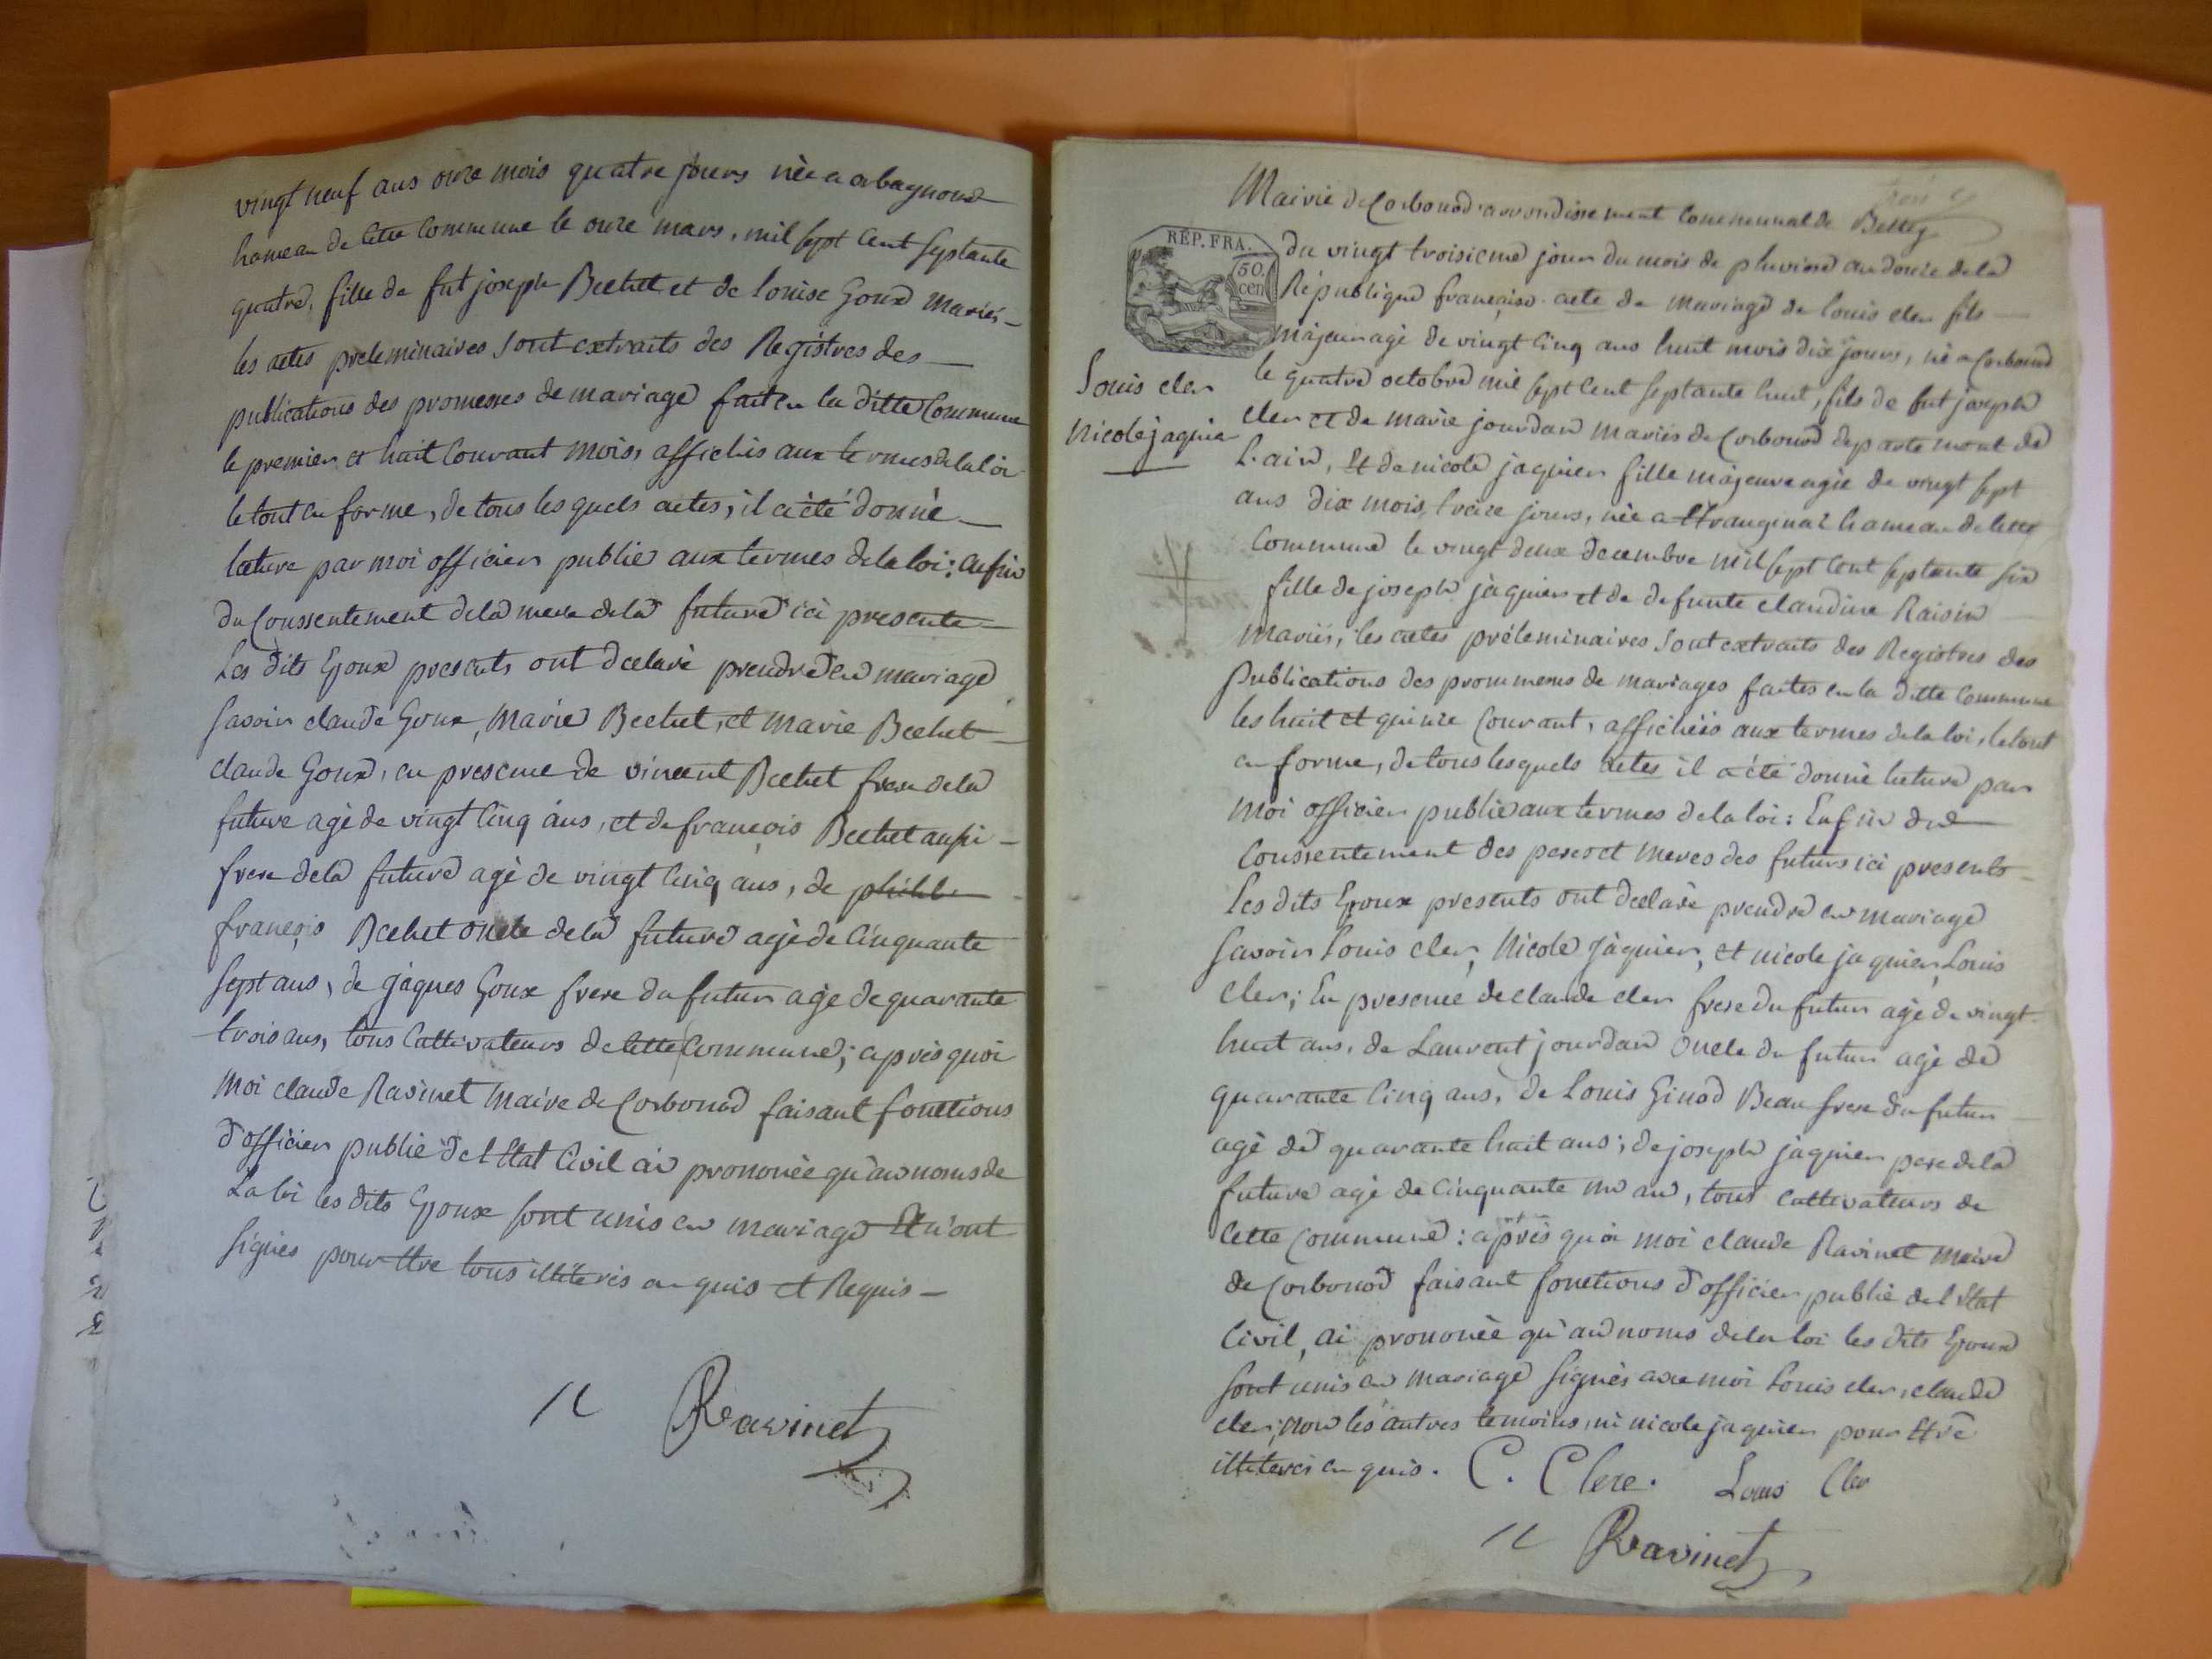 vingt neuf ans onze mois quatre jours née a orbagnoud
hameau de cette commune le onze mars, mil sept cent septante
quatre, fille de fut joseph Bechet et de louise Goux mariés
les actes preleminaires sont extraits des Registres des
publications des promesses de mariage fait en la ditte Commune
le premier et huit Courant mois, affichés aux termes de la loi
le tout en forme, de tous les quels actes, il a été donné
lecture par moi officier public aux termes de la loi: enfin
du Conssentement de la mere de la future ici presente
Les dits Epoux presents ont declaré prendre en mariage
savoir claude Goux, Marie Bechet, et marie Bechet
claude Goux, en presence de vincent Bechet frere de la
future agé de vingt cinq ans, et de françois Bechet aussi
frere de la future agé de vingt cinq ans, de
françois Bechet oncle de la future agé de cinquante
sept ans, de jaques Goux frere du futur agé de quarante
trois ans, tous cultivateurs de cette Commune; après quoi
moi claude Ravinet maire de Corbonod faisant fonctions
d'officier public de l'Etat Civil ai prononcé qu'au noms de
La loi les dits Epoux sont unis en mariage Et n'ont
signés pour être tous illiterés en quis et Requis
Ravinet
Mairie de Corbonod arrondissement Communnal de Belley
REP. FRA.
50. cen
du vingt troisieme jour du mois de pluviose an douze de la
République française acte de mariage de louis cler fils
majeur agé de vingt cinq ans huit mois dix jours, né a Corbonod
Louis cler
le quatre octobre mil sept cent septante huit, fils de fut joseph
Nicole jaquier
cler et de marie jourdan mariés de Corbonod departement de
L'ain, Et de nicole jaquier fille majeure agée de vingt sept
ans dix mois, treize jours, née a Etranginaz hameau de cette
Commune le vingt deux decembre mil sept cent septante six
fille de joseph jaquier et de defunte claudine Raisin
mariés, les actes préleminaires sont extraits des Registres des
publications des prommesses de mariages faites en la ditte Commune
les huit et quinze Courant, affichées aux termes de la loi, le tout
en forme, de tous les quels actes il a été donné lecture par
moi officier public aux termes de la loi: Enfin du
Conssentement des peres et meres des futurs ici presents
Les dits Epoux presents ont declaré prendre en mariage
savoir Louis cler, Nicole jaquier, et nicole jaquier, Louis
cler; En presence de claude cler frere du futur agé de vingt
huit ans, de Laurent jourdan oncle du futur agé de
quarante cinq ans, de Louis Ginod Beau frere du futur
agé de quarante huit ans; de joseph jaquier pere de la
future agé de cinquante un an, tous cultivateurs de
cette Commune: après quoi moi claude Ravinet maire
de Corbonod faisant fonctions d'officier public de l'Etat
Civil, ai prononcé qu'au noms de la loi les dits Epoux
sont unis en mariage signés avec moi Louis cler, claude
cler; non les autres temoins, ni nicole jaquier pour Etre
illiterés en quis. C. Clere. Louis Cler
Ravinet